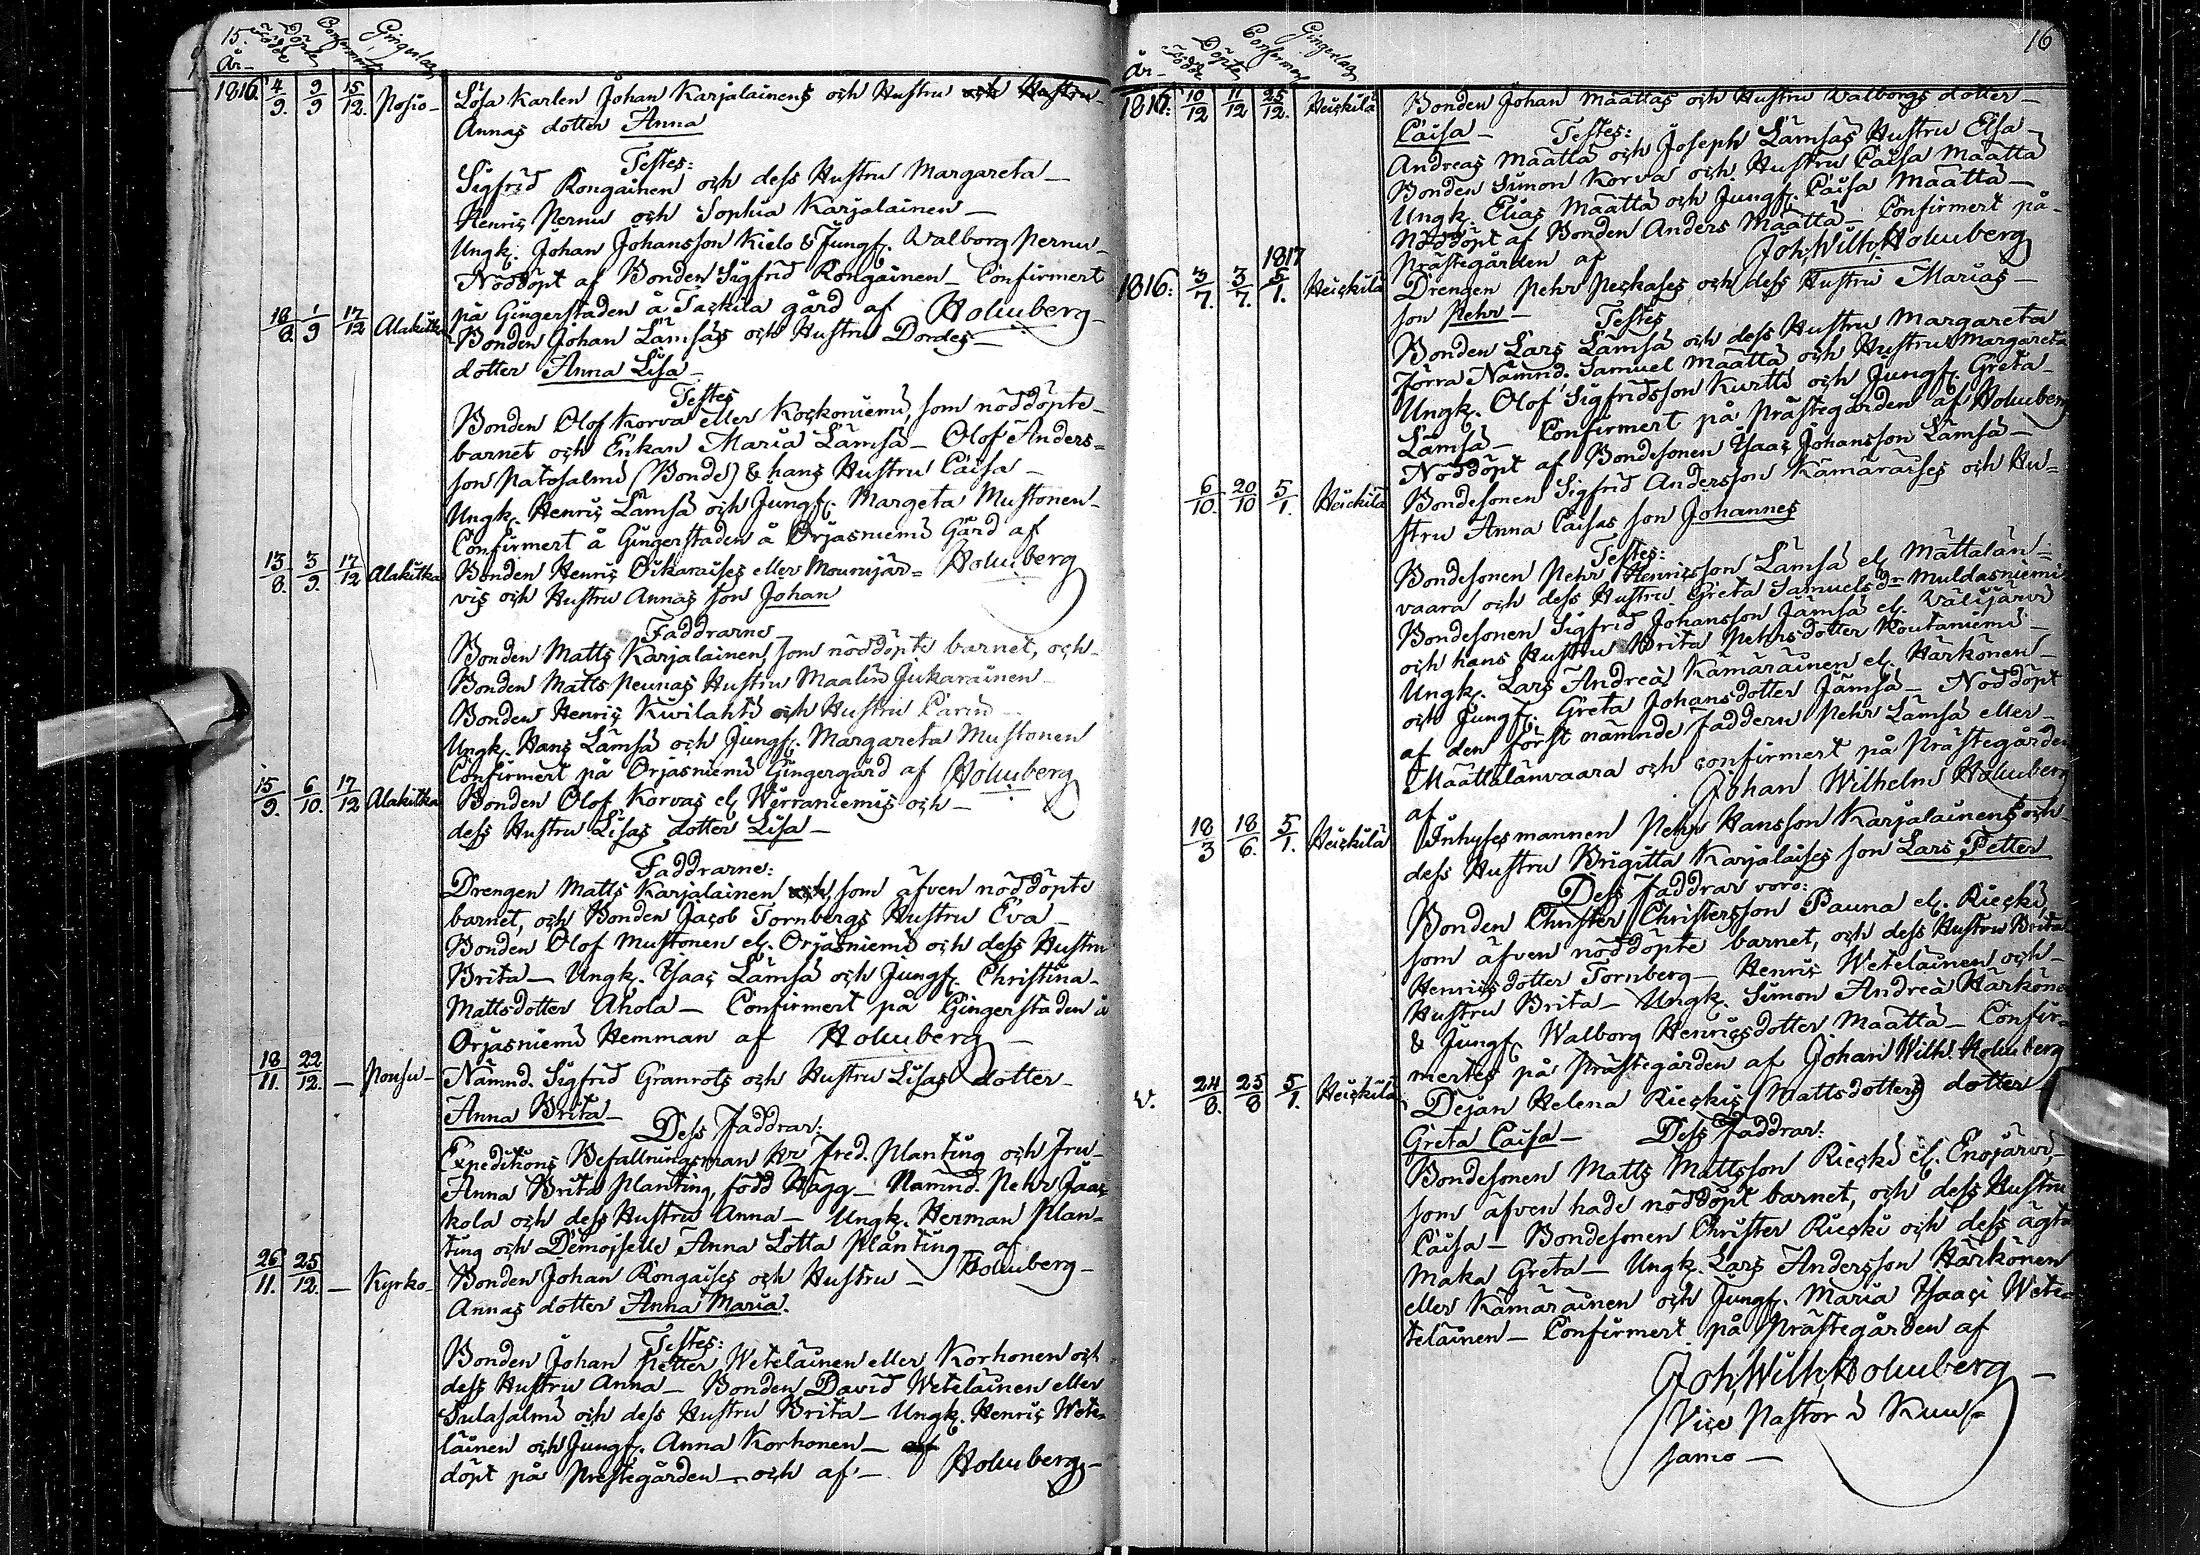 15.
År
Födde
Döpte
Confirmerte
Gingerlag
1816. 4/9. 9/9 15/12. Posio
Lösa Karlen Johan Karjalainens och Hustru och Hustru
Annas dotter Anna
Testes:
Sigfrid Rongainen och dess Hustru Margareta
Henric Pernu och Sophia Karjalainen
Ungk. Johan Johansson Kielo & Jungf. Walborg Pernu
Nöddöpt af Bonden Sigfrid Rongainen Confirmert
på Gingerstaden å Tackila gård af Holmberg
18/8. 1/9 17/12 Alakitka
Bonden Johan Lämsäs och Hustru Dordes
dotter Anna Lisa
Testes
Bonden Olof Korva eller Kockoniemi, som nöddöpte
barnet och Enkan Maria Lämsä Olof Anders=
son Patosalmi (Bonde) & hans Hustru Caisa
Ungk. Henric Lämsä och Jungf. Margeta Mustonen
Confirmert å Gingerstaden å Orjasniemi Gård af
Holmberg
13/8. 3/9. 17/12 Alakitka
Bonden Henric Oikaraises eller Mourujär=
vis och Hustru Annas son Johan
Faddrarne
Bonden Matts Karjalainen, som nöddöpte barnet, och
Bonden Matts Peunas Hustru Maalin Jukarainen
Bonden Henric Kwilahti och Hustru Carin
Ungk. Hans Lämsä och Jungf. Margareta Mustonen
Confirmert på Orjasniemi Gingergård af Holmberg
15/9. 6/10. 17/12 Alakitka
Bonden Olof Korvas el. Wirraniemis och
dess Hustru Lisas dotter Lisa
Faddrarne:
Drengen Matts Karjalainen och, som äfven nöddöpte
barnet, och Bonden Jacob Tornbergs Hustru Eva
Bonden Olof Mustonen el. Orjasniemi och dess Hustru
Brita Ungk. Isaac Lämsä och Jungf. Christina
Mattsdotter Ahola Confirmert på Gingerstaden å
Orjasniemi Hemman af Holmberg
18/11. 22/12. Pousu
Nämnd. Sigfrid Granrots och Hustru Lisas dotter
Anna Brita
Dess Faddrar:
Expeditions Befallningsman Hr Fred. Planting och Fru
Anna Brita Planting, född Hägg Nämnd. Pehr Jaac=
kola och dess Hustru Anna Ungk. Herman Plan=
ting och Demoiselle Anna Lotta Planting af
Holmberg
26/11. 25/12. Kyrko
Bonden Johan Rongaises och Hustru
Annas dotter Anna Maria.
Testes:
Bonden Johan Petter Weteläinen eller Korhonen och
dess Hustru Anna Bonden David Weteläinen eller
Sulasalmi och dess Hustru Brita Ungk. Henric Wete=
läinen och Jungf. Anna Korhonen af
döpt på Prestegården och af Holmberg
16
År
Födde
Döpte
Confirmer
Gingerlag
10/12 11/12 25/12. Heickilä
Bonden Johan Määttäs och Hustru Walborgs dotter
Caisa Testes:
Andreas Määttä och Joseph Lämsäs Hustru Elsa
Bonden Simon Korva och Hustru Caisa Määttä
Ungk. Elias Määttä och Jungf. Caisa Määttä
Nöddöpt af Bonden Anders Määttä Confirmert på
Prästegården af Joh. Wilh. Holmberg
1816: 3/7. 3/7. 1817 5/1. Heickilä
Drengen Pehr Peckases och dess Hustru Marias
son Pehr Testes
Bonden Lars Lämsä och dess Hustru Margareta
förra Nämnd. Samuel Määttä och Hustru Margareta
Ungk. Olof Sigfridsson Kurtti och Jungf. Greta
Lämsä Confirmert på Prästegården af Holmberg
Nöddöpt af Bondesonen Isaac Johansson Lämsä
6/10. 20/10 5/1. Heickilä
Bondesonen Sigfrid Andersson Kämäräises och Hu=
stru Anna Caisas son Johannes
Testes:
Bondesonen Pehr Henricsson Lämsä el. Mättälän=
vaara och dess Hustru Greta Samuels dr Muldasniemi
Bondesonen Sigfrid Johansson Jämsä el. Välijärvi
och hans Hustru Brita Pehrsdotter Koutaniemi
Ungk. Lars Andreä Kämäräinen el. Härkönen
och Jungf. Greta Johansdotter Jämsä Nöddöpt
af den först nämnde Faddern Pehr Lämsä eller
Määttälänvaara och confirmert på Prästegården
af Johan Wilhelm Holmberg
18/3 18/6. 5/1. Heickilä
Inhysesmannen Pehr Hansson Karjalainens och
dess Hustru Brigitta Karjalaises son Lars Petter
Dess Faddrar voro:
Bonden Christer Christersson Pauna el. Riecki,
som äfven nöddöpte barnet, och dess Hustru Brita
Henricsdotter Tornberg Henric Weteläinen och
Hustru Brita Ungk. Simon Andreä Härköne
& Jungf. Walborg Henricsdotter Määttä Confir=
mertes på Prästegården af Johan Wilh. Holmberg
v. 24/8. 25/8 5/1. Heickilä
Dejan Helena Rieckis (Mattsdotters) dotter
Greta Caisa Dess Faddrar:
Bondesonen Matts Mattsson Riecki el. Enojärvi,
som äfven hade nöddöpt barnet, och dess Hustru
Caisa Bondesonen Christer Riecki och dess ägta
Maka Greta Ungk. Lars Andersson Härkönen
eller Kämäräinen och Jungf. Maria Isaaci Wete=
teläinen Confirmert på Prästegården af
Joh. Wilh. Holmberg
Vice Pastor i Kuu=
samo